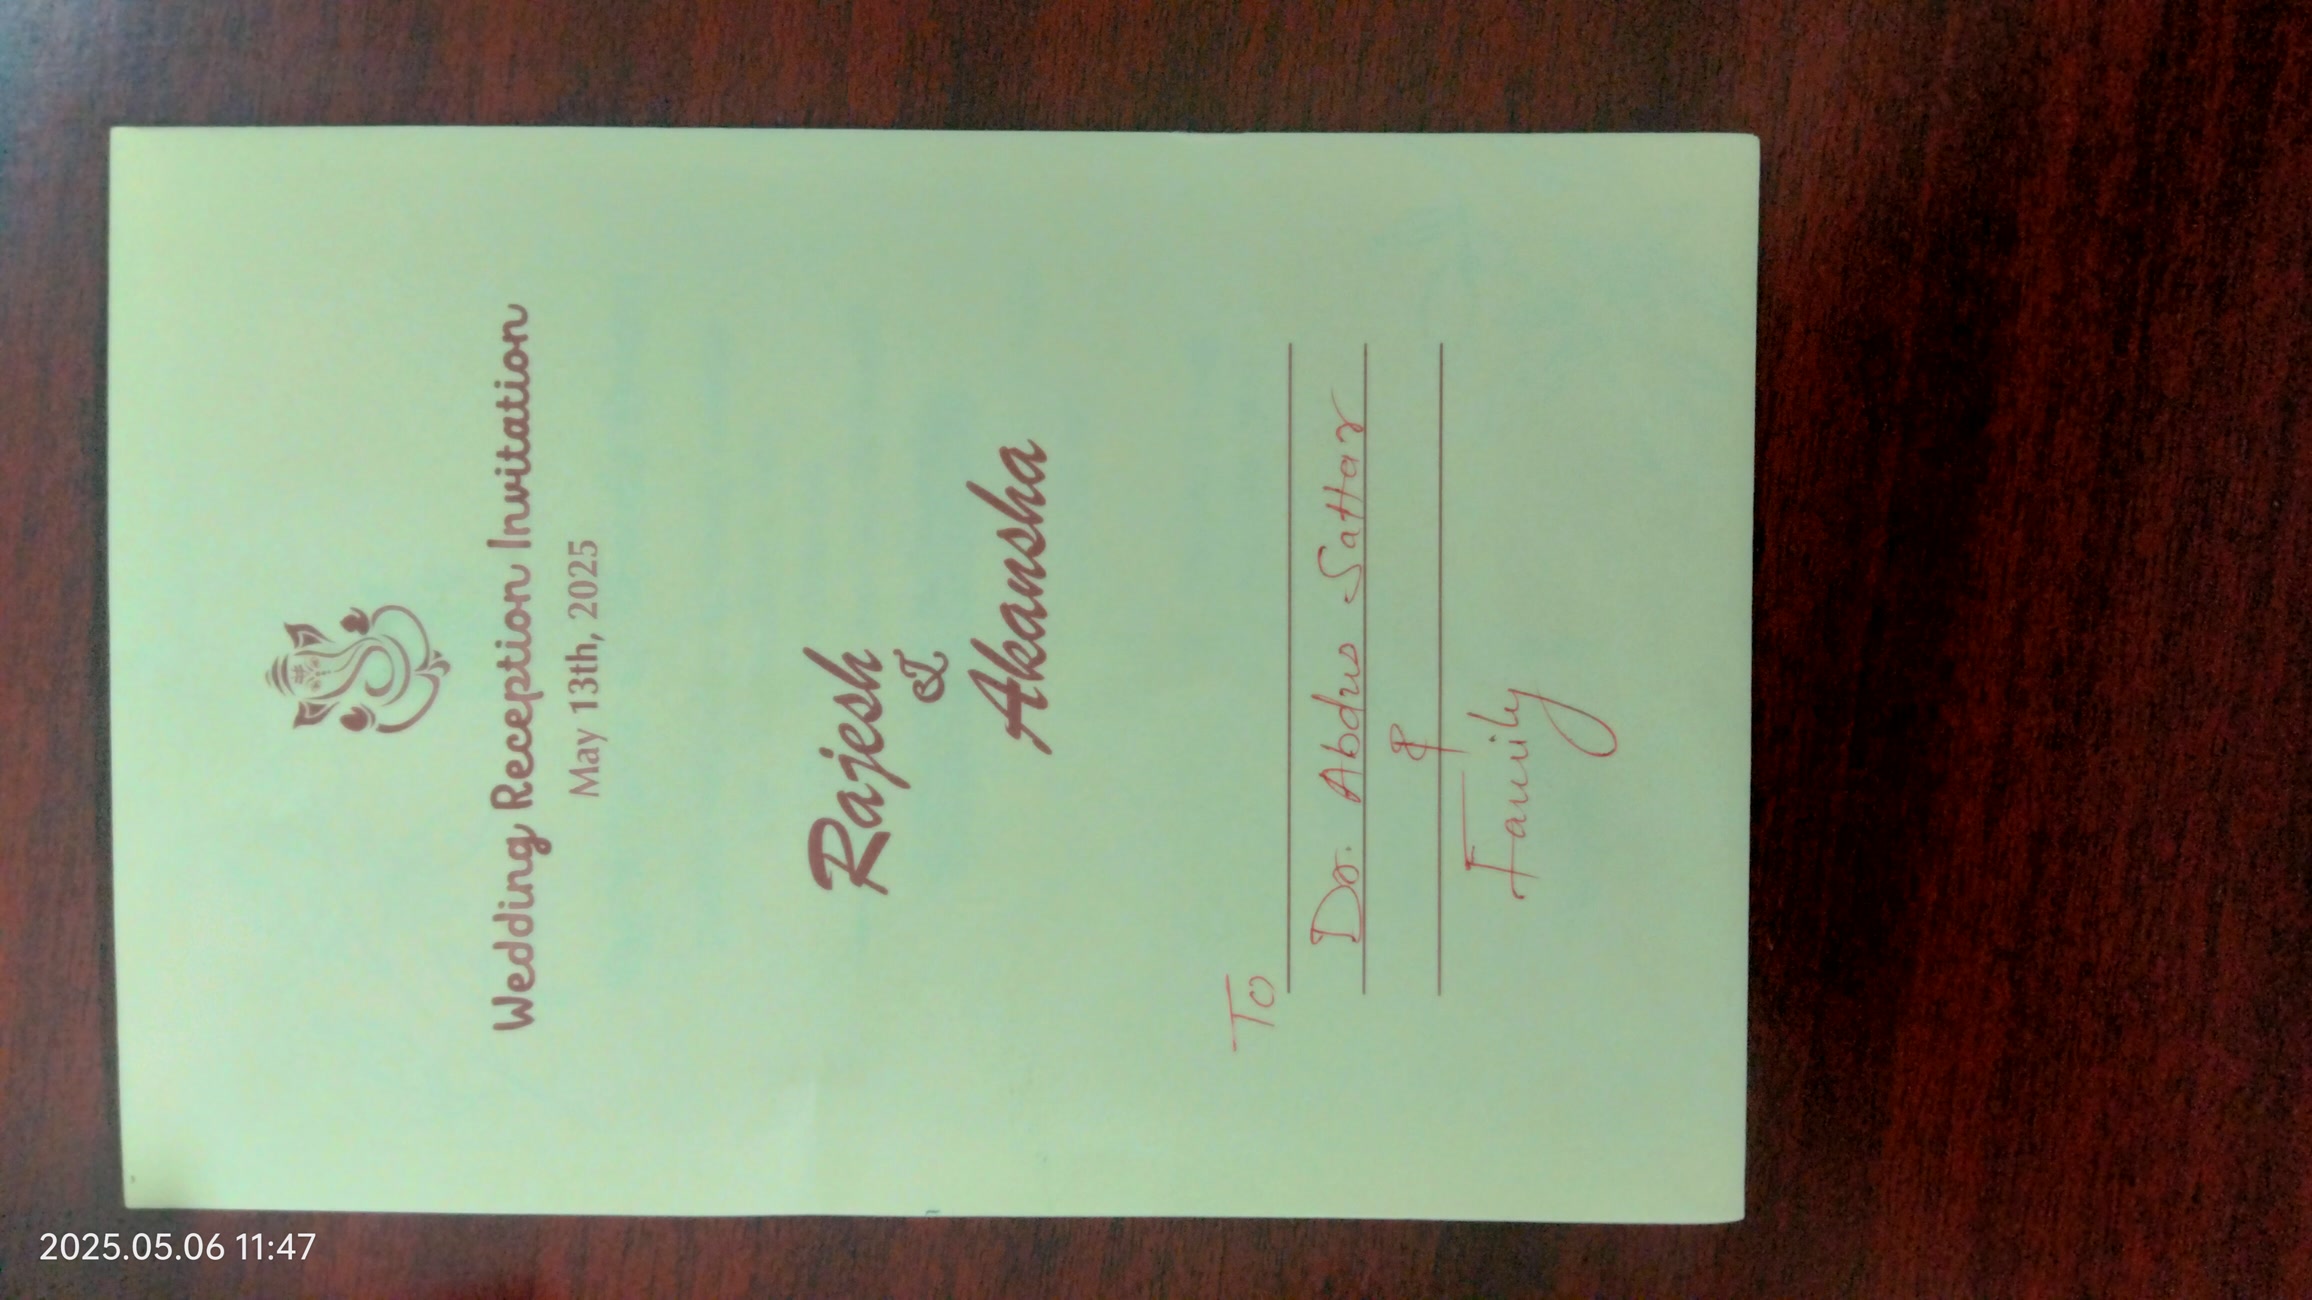 Wedding Reception Invitation
May 13th, 2025
Rajesh
&
Akansha
To
Dr. Abdus Sattar
&
Family
2025.05.06 11:47